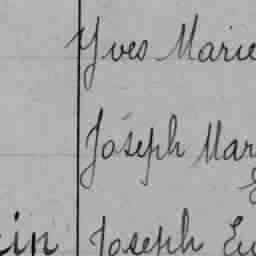 Yves Marie
Joseph Mar
in Joseph Eu